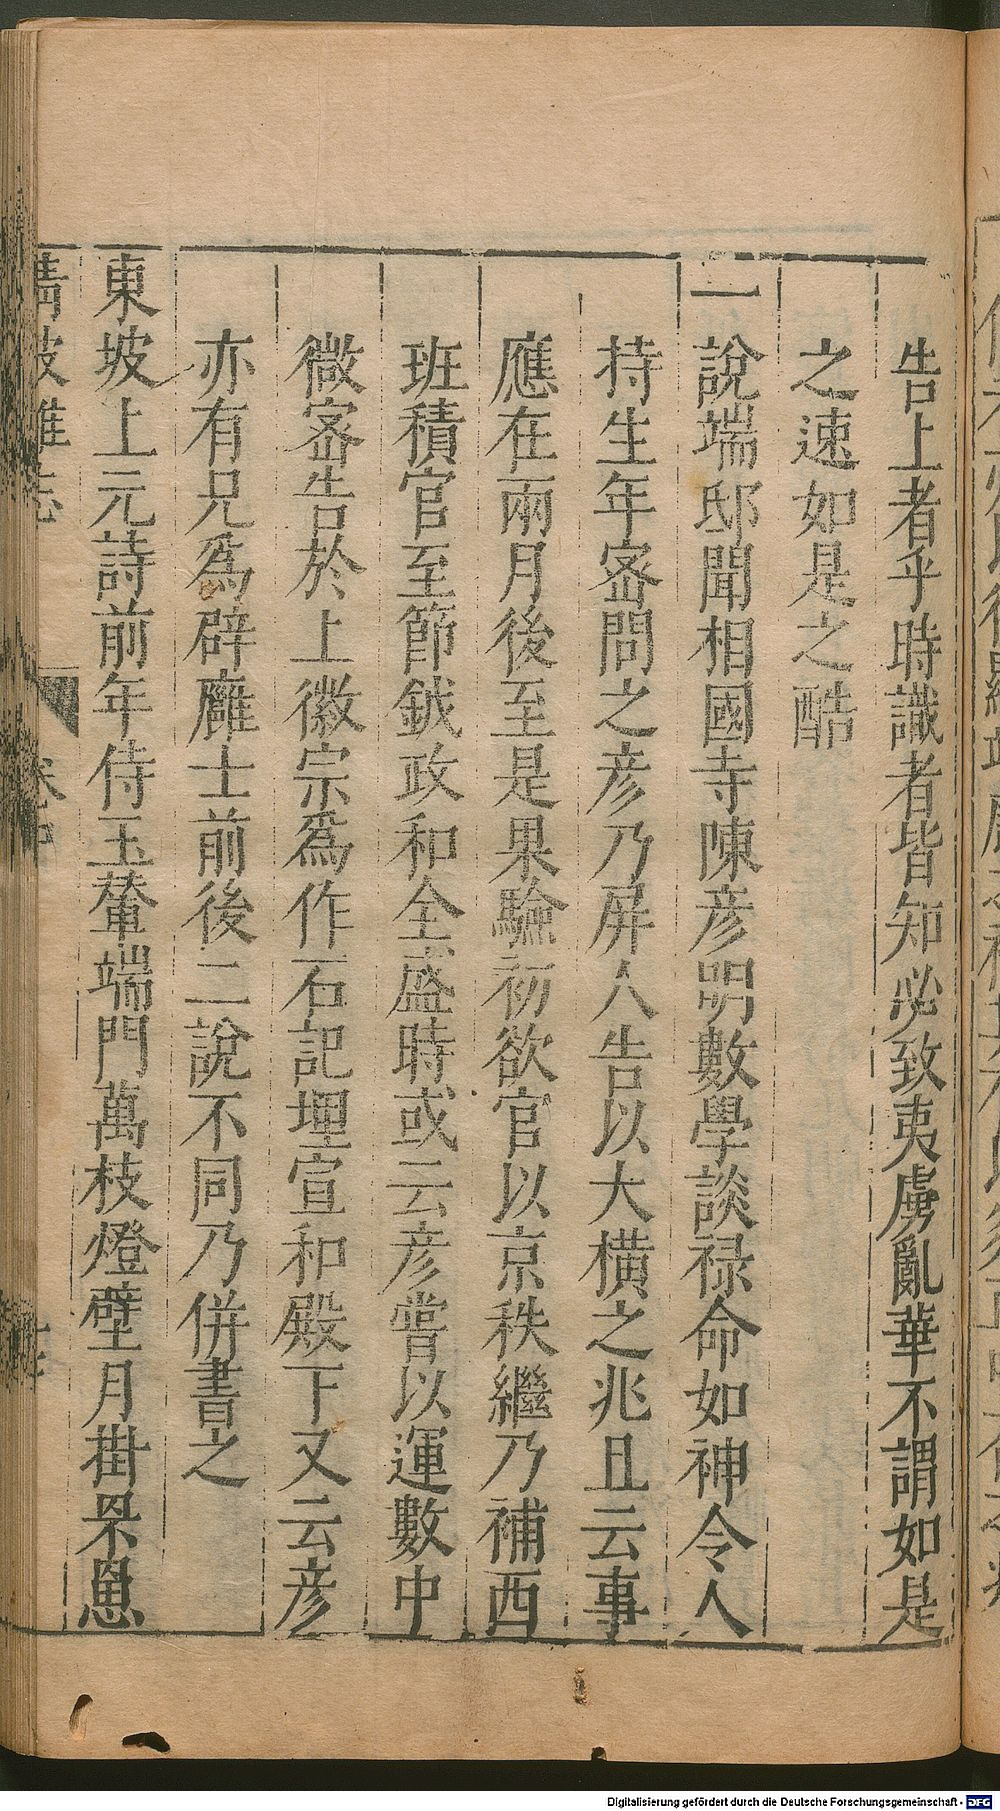 告上者乎時識者皆知必致夷虜亂華不謂如是
之速如是之酷
一說端邸聞相國寺陳彦明數學談禄命如神令人
持生年宻問之彦乃屏人告以大橫之兆且云事
應在兩月後至是果驗初欲官以京秩繼乃補西
班積官至節鉞政和全盛時或云彦嘗以運數中
微宻告於上徽宗爲作石記埋宣和殿下又云彦
亦有兄爲辟廱士前後二說不同乃併書之
東坡上元詩前年侍玉輦端門萬枝燈璧月掛罘罳
清波雜志
Digitalisierung gefördert durch die Deutsche Forschungsgemeinschaft - DFG